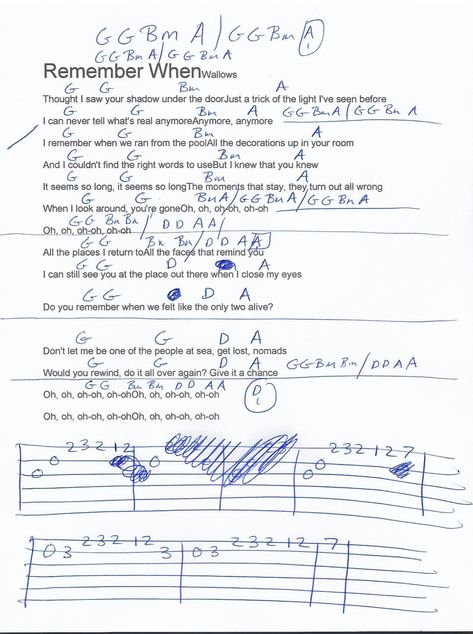 G G Bm A / G G Bm A 1
G G Bm A / G G Bm A
Remember When Wallows
G G Bm A
Thought I saw your shadow under the doorJust a trick of the light I've seen before
G G Bm A G G Bm A / G G Bm A
I can never tell what's real anymoreAnymore, anymore
G G Bm A
I remember when we ran from the poolAll the decorations up in your room
G G Bm A
And I couldn't find the right words to useBut I knew that you knew
G G Bm A
It seems so long, it seems so longThe moments that stay, they turn out all wrong
G G Bm A / G G Bm A / G G Bm A
When I look around, you're goneOh, oh, oh-oh, oh-oh
G G Bm Bm / D D A A /
Oh, oh, oh-oh, oh-oh
G G Bm Bm / D D A A
All the places I return toAll the faces that remind you
G G D A
I can still see you at the place out there when I close my eyes
G G D A
Do you remember when we felt like the only two alive?
G G D A
Don't let me be one of the people at sea, get lost, nomads
G G D A G G Bm Bm / D D A A
Would you rewind, do it all over again? Give it a chance
G G Bm Bm D D A A D 1
Oh, oh, oh-oh, oh-ohOh, oh, oh-oh, oh-oh
Oh, oh, oh-oh, oh-ohOh, oh, oh-oh, oh-oh
0 0 2 3 2 1 2 0 0 0 2 3 2 1 2 7
0 3 2 3 2 1 2 3 0 3 2 3 2 1 2 7